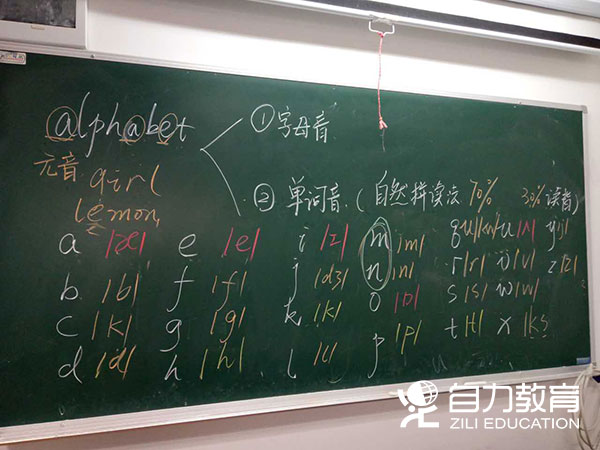 alphabet
① 字母音
元音
girl
lemon
② 单词音 (自然拼读法 70% 30%读音)
a /æ/ e /e/ i /ɪ/ m /m/ qu /kw/ u /ʌ/ y /j/
b /b/ f /f/ j /dʒ/ n /n/ r /r/ v /v/ z /z/
c /k/ g /g/ k /k/ o /ɒ/ s /s/ w /w/
d /d/ h /h/ l /l/ p /p/ t /t/ x /ks
自力教育
ZILI EDUCATION